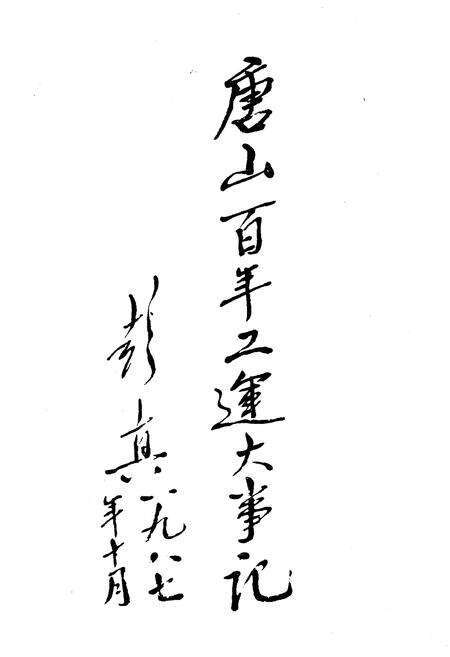 唐山百年工运大事记
彭真
一九八七
年十月